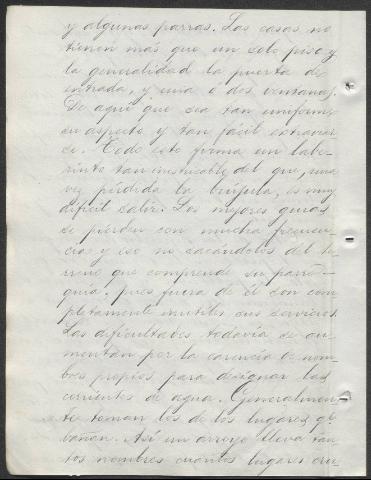 y algunas parras. Las casas no
tienen más que un solo piso y
la generalidad la puerta de
entrada, y una ó dos ventanas.
De aquí que sea tan uniforme
su aspecto y tan fácil extraviar
se. Todo esto forma un labe-
rinto tan inextricable del que, una
vez perdida la brújula, es muy
difícil salir. Los mejores guías
se pierden con mucha frecuen-
cia; y eso no sacándolos del te-
rreno que comprende su parro-
quia, pues fuera de él son com-
pletamente inútiles sus servicios.
Las dificultades todavía se au-
mentan por la carencia de nom-
bres propios para designar las
corrientes de agua. Generalmen-
te toman los de los lugares q.
bañan. Así un arroyo lleva tan
tos nombres cuantos lugares cru-